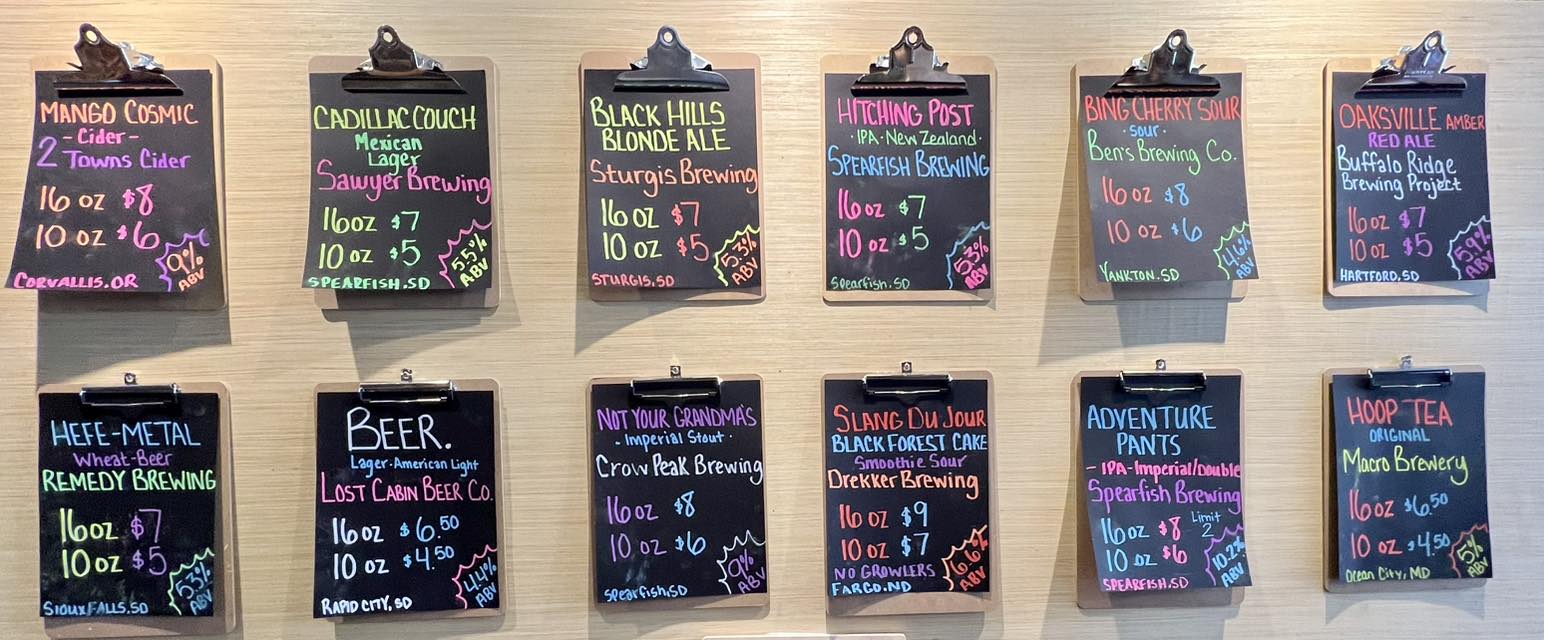 MANGO COSMIC
- Cider -
2 Towns Cider
16 oz $8
10 oz $6
9% ABV
CORVALLIS, OR
CADILLAC COUCH
Mexican
Lager
Sawyer Brewing
16 oz $7
10 oz $5
5.5% ABV
SPEARFISH, SD
BLACK HILLS
BLONDE ALE
Sturgis Brewing
16 oz $7
10 oz $5
5.3% ABV
STURGIS, SD
HITCHING POST
· IPA - New Zealand ·
SPEARFISH BREWING
16 oz $7
10 oz $5
5.3% ABV
Spearfish, SD
BING CHERRY SOUR
· sour ·
Ben's Brewing Co.
16 oz $8
10 oz $6
4.6% ABV
YANKTON, SD
OAKSVILLE AMBER
RED ALE
Buffalo Ridge
Brewing Project
16 oz $7
10 oz $5
5.9% ABV
HARTFORD, SD
HEFE-METAL
Wheat-Beer
REMEDY BREWING
16 oz $7
10 oz $5
5.3% ABV
SIOUX FALLS, SD
BEER.
Lager-American Light
LOST CABIN BEER CO.
16 oz $6.50
10 oz $4.50
4.4% ABV
RAPID CITY, SD
NOT YOUR GRANDMA'S
- Imperial Stout -
Crow Peak Brewing
16 oz $8
10 oz $6
9% ABV
Spearfish, SD
SLANG DU JOUR
BLACK FOREST CAKE
Smoothie Sour
Drekker Brewing
16 oz $9
10 oz $7
NO GROWLERS
6.6% ABV
FARGO, ND
ADVENTURE
PANTS
- IPA - Imperial/Double
Spearfish Brewing
16 oz $8 Limit 2
10 oz $6
10.2% ABV
SPEARFISH, SD
HOOP TEA
ORIGINAL
Macro Brewery
16 oz $6.50
10 oz $4.50
5% ABV
Ocean City, MD